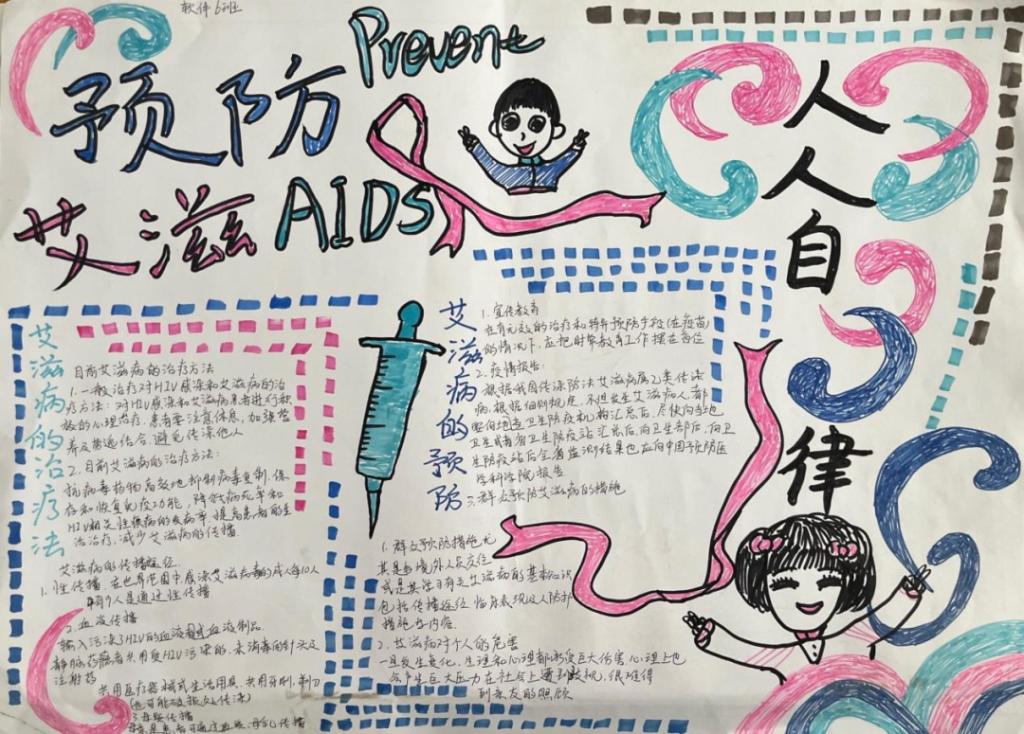 软件6班
预防
Prevent
艾滋
AIDS
人人自律
艾滋病的治疗法
目前艾滋病的治疗方法
1.一般治疗对HIV感染和艾滋病的治
疗方法:对HIV感染和艾滋病患者进行积
极的心理治疗,患者要注意休息,加强营
养及劳逸结合,避免传染他人
2.目前艾滋病的治疗方法:
抗病毒药物有效地抑制病毒复制,保
存和恢复免疫功能,降低病死率和
HIV相关性疾病的发病率,提高患者的生
活治疗,减少艾滋病的传播.
艾滋病的传播途径
1.性传播:在世界范围中感染艾滋病毒的成人每10人
有9人是通过性传播
2.血液传播
输入污染了HIV的血液或血液制品
静脉药瘾者共用受HIV污染的,未消毒的针头及
注射药
共用医疗器械或生活用具,共用牙刷,剃刀
(也可能被感染传染)
3.母婴传播
艾滋病的预防
1.宣传教育
在有效的治疗和特异预防手段(在疫苗)
的情况下,应把时常教育工作摆在首位
2.疫情报告:
根据我国传染防法艾滋病属乙类传染
病,根据细则规定,
卫生部后,向卫
生防疫站后全省监测结果也应向中国预防医
学科学院报告
3.群众预防艾滋病的措施
1.群众预防措施尤
其是与境外人员交往
或是其学习有关艾滋病的基本知识
包括传播途径 临床表现及人防护
措施与内容.
2.艾滋病对个人的危害
一旦发生变化,生理和心理都承受巨大伤害,心理上也
会产生巨大压力在社会上遭到歧视,很难得
到亲友的照顾